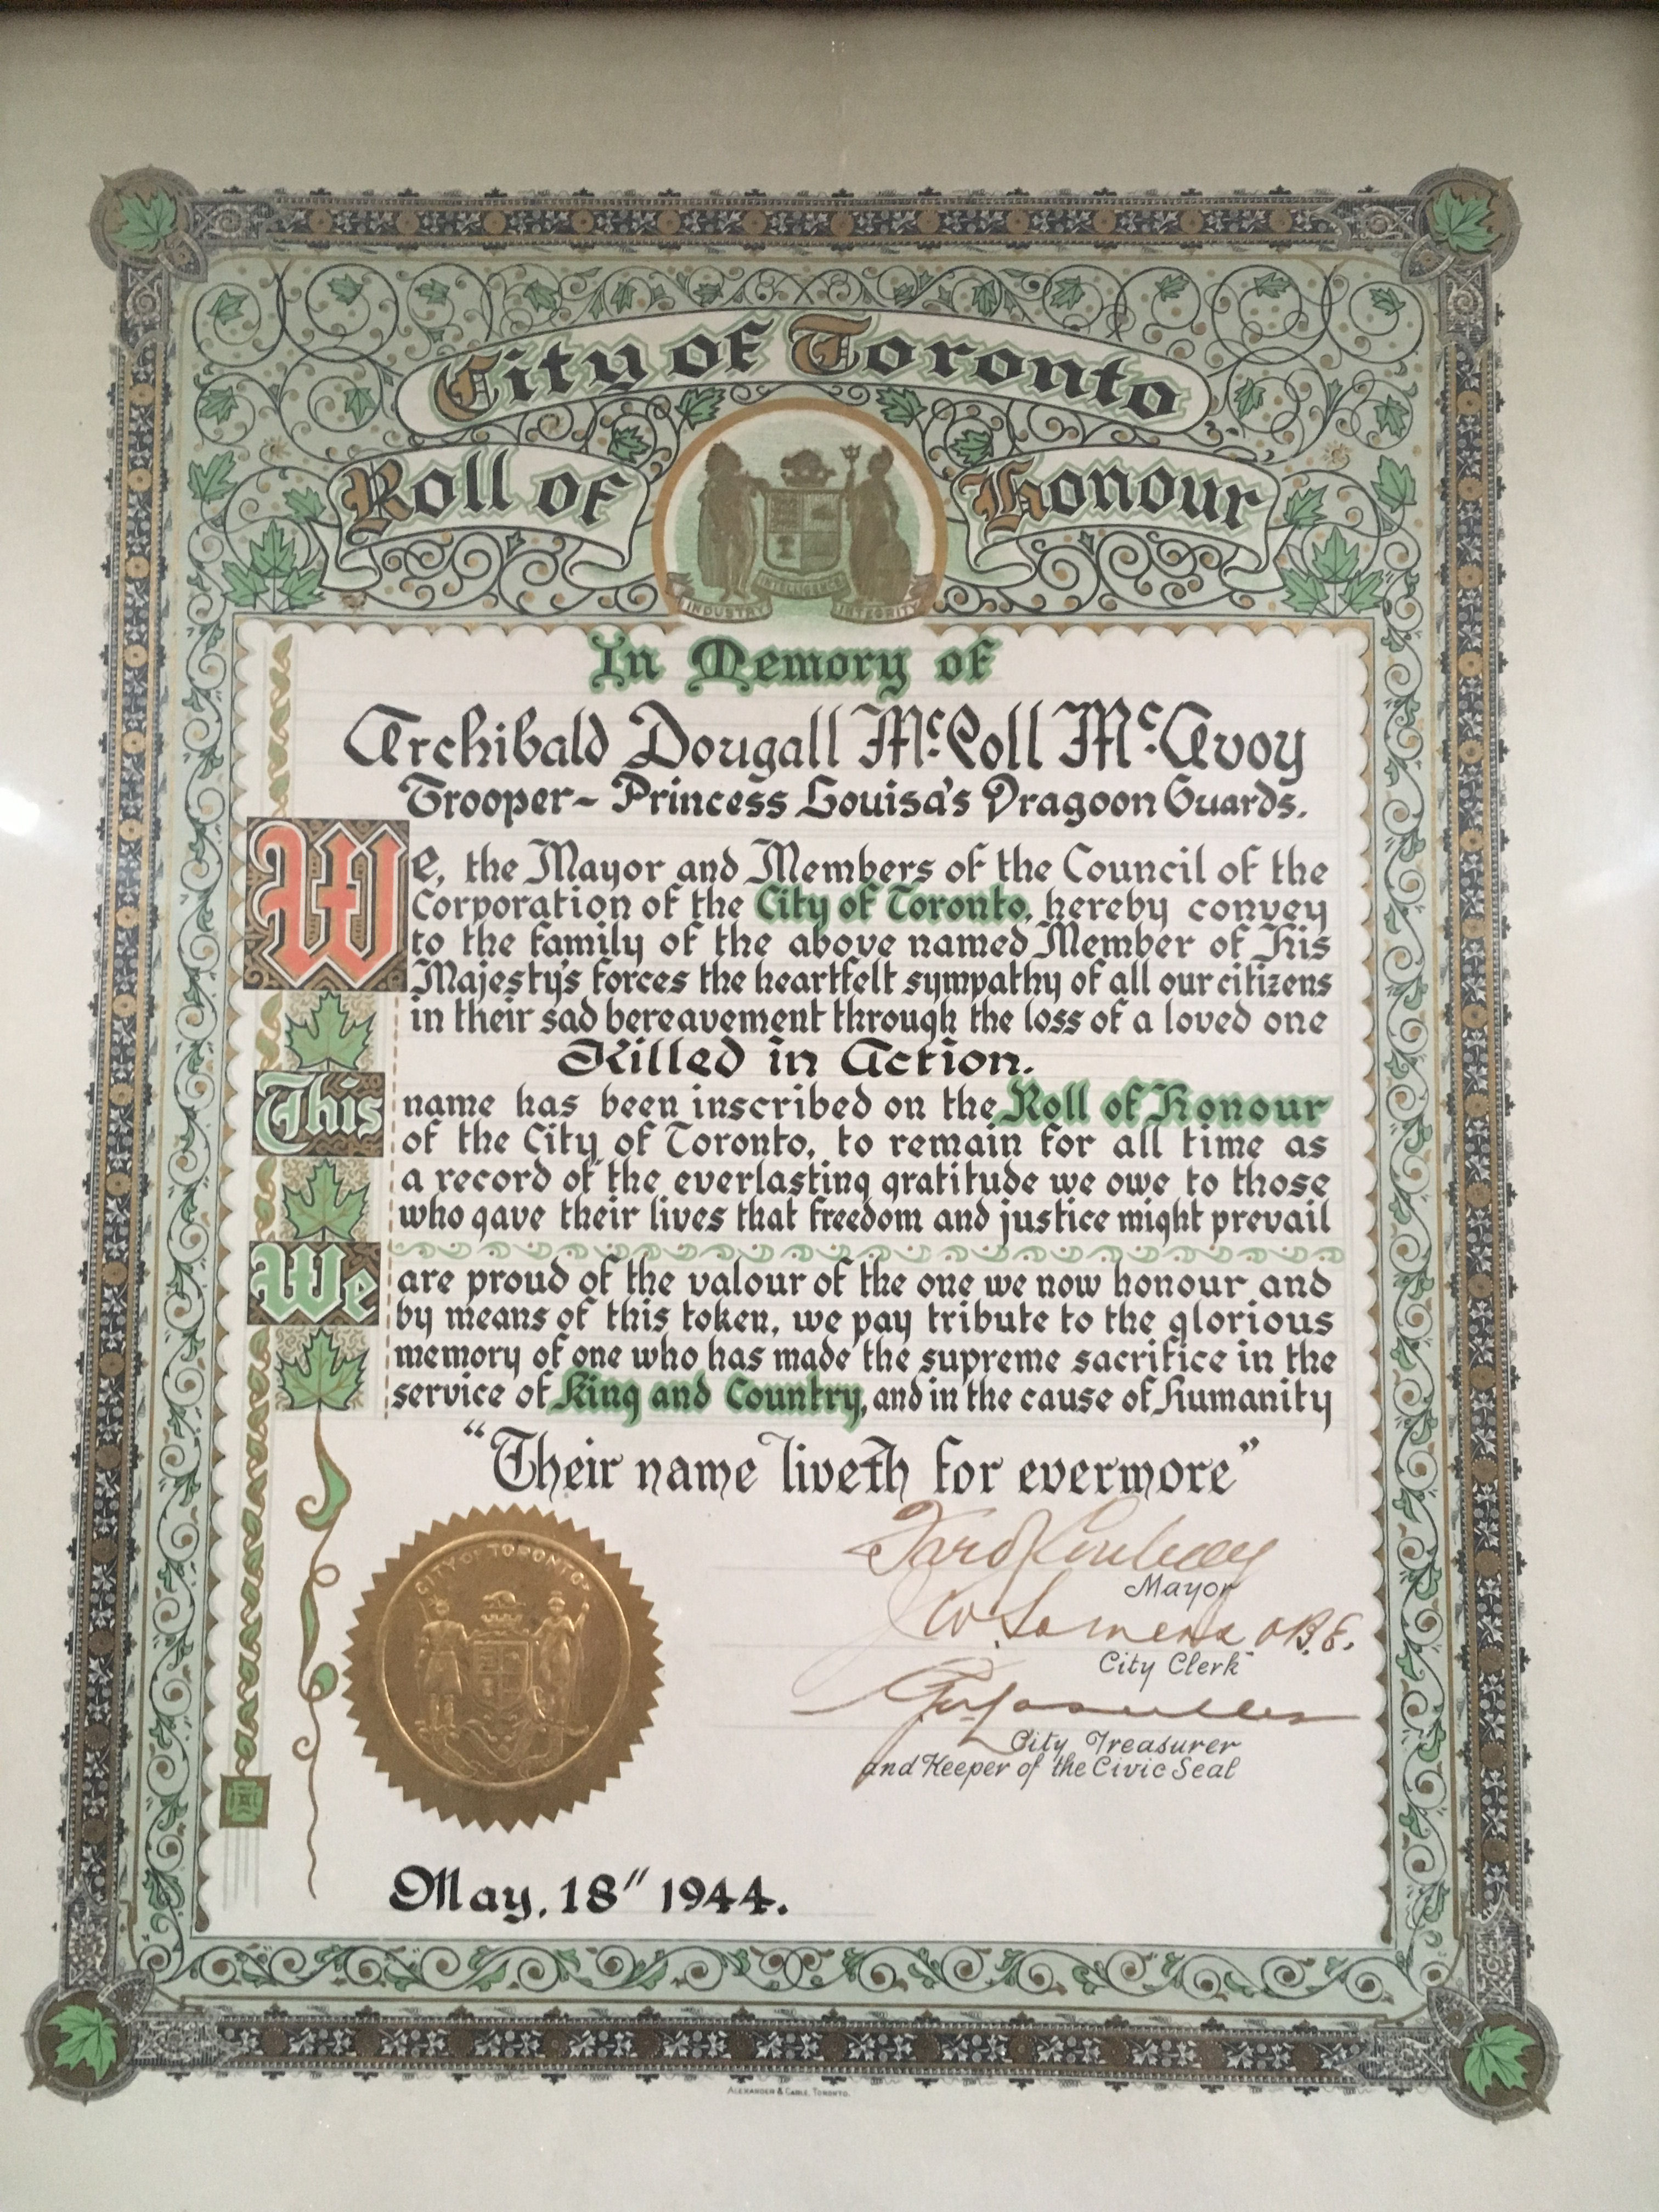 City of Toronto
Roll of Honour
INDUSTRY INTELLIGENCE INTEGRITY
In Memory of
Archibald Dougall McColl Mc.Avoy
Trooper - Princess Louisa's Dragoon Guards.
We, the Mayor and Members of the Council of the
Corporation of the City of Toronto, hereby convey
to the family of the above named Member of His
Majesty's forces the heartfelt sympathy of all our citizens
in their sad bereavement through the loss of a loved one
Killed in Action.
This name has been inscribed on the Roll of Honour
of the City of Toronto, to remain for all time as
a record of the everlasting gratitude we owe to those
who gave their lives that freedom and justice might prevail
We are proud of the valour of the one we now honour and
by means of this token, we pay tribute to the glorious
memory of one who has made the supreme sacrifice in the
service of King and Country, and in the cause of humanity
"Their name liveth for evermore"
CITY OF TORONTO
Mayor
O.B.E.
City Clerk
City Treasurer
and Keeper of the Civic Seal
May, 18" 1944.
ALEXANDER & CABLE, TORONTO.